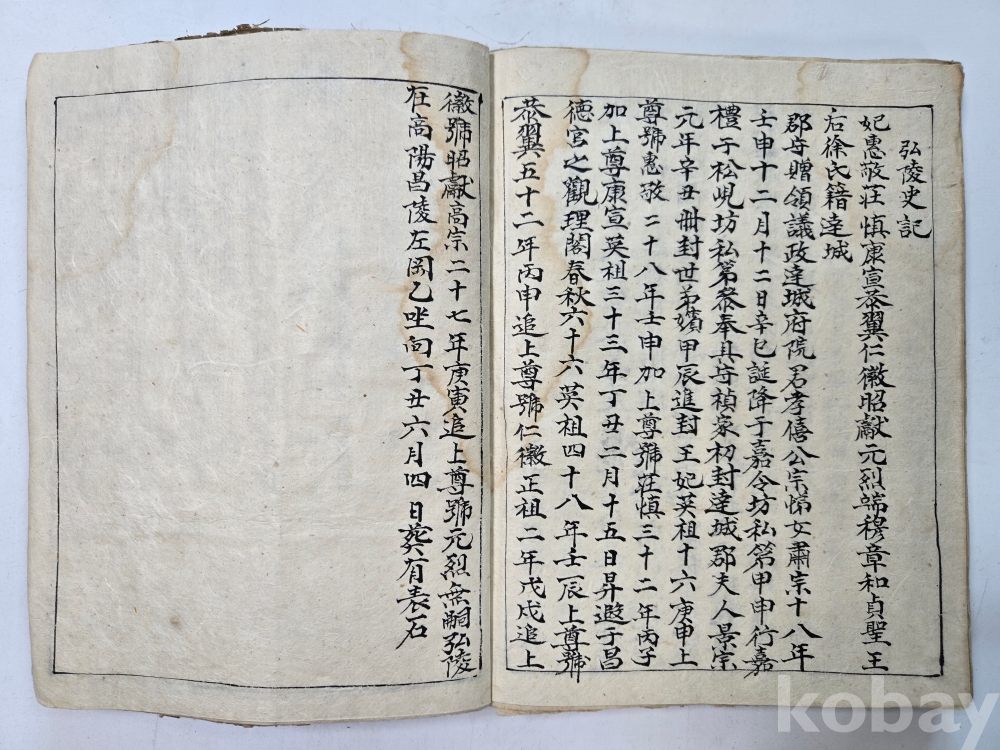 弘陵史記
妃惠敬莊愼康宣恭翼仁徽昭獻元烈端穆章和貞聖王
后徐氏籍達城
郡守贈領議政達城府院君孝僖公宗悌女肅宗十八年
壬申十二月十二日辛巳誕降于嘉会坊私第甲申行嘉
禮于松峴坊私第叅奉具守禎家初封達城郡夫人景宗
元年辛丑冊封世弟嬪甲辰進封王妃英祖十六庚申上
尊號惠敬二十八年壬申加上尊號莊愼三十二年丙子
加上尊康宣英祖三十三年丁丑二月十五日昇遐于昌
德宮之觀理閣春秋六十六英祖四十八年壬辰上尊號
恭翼五十二年丙申追上尊號仁徽正祖二年戊戌追上
徽號昭獻高宗二十七年庚寅追上尊號元烈無嗣弘陵
在高陽昌陵左岡乙坐向丁丑六月四日葬有表石
kobay